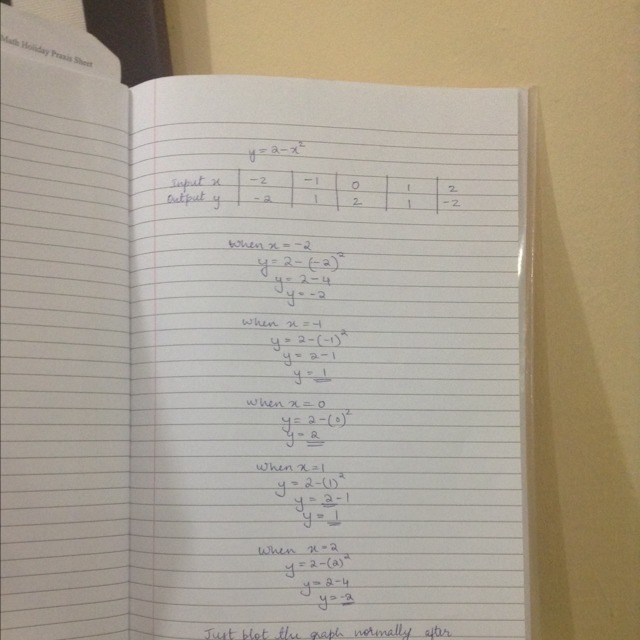 Math Holiday Praxis Sheet
y = 2-x²
Input x | -2 | -1 | 0 | 1 | 2
Output y | -2 | 1 | 2 | 1 | -2
when x = -2
y = 2-(-2)²
y = 2-4
y = -2
when x = -1
y = 2-(-1)²
y = 2-1
y = 1
when x = 0
y = 2-(0)²
y = 2
when x = 1
y = 2-(1)²
y = 2-1
y = 1
when x = 2
y = 2-(2)²
y = 2-4
y = -2
Just plot the graph normally after